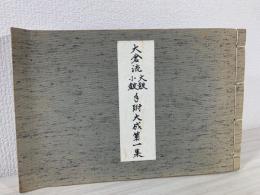 大倉流大鼓小鼓手附大成第一集